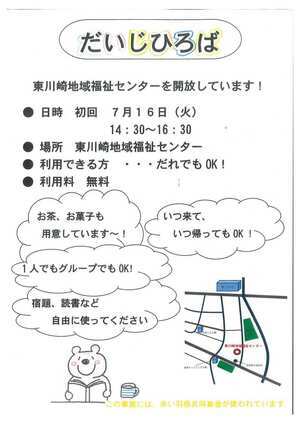 だいじひろば
東川崎地域福祉センターを開放しています！
● 日時　初回　７月１６日（火）
１４：３０～１６：３０
● 場所　東川崎地域福祉センター
● 利用できる方　・・・だれでもOK！
● 利用料　無料
お茶、お菓子も
用意しています～！
いつ来て、
いつ帰ってもOK！
１人でもグループでもOK！
宿題、読書など
自由に使ってください
東川崎地域福祉センター
この事業には、赤い羽根共同募金が使われています